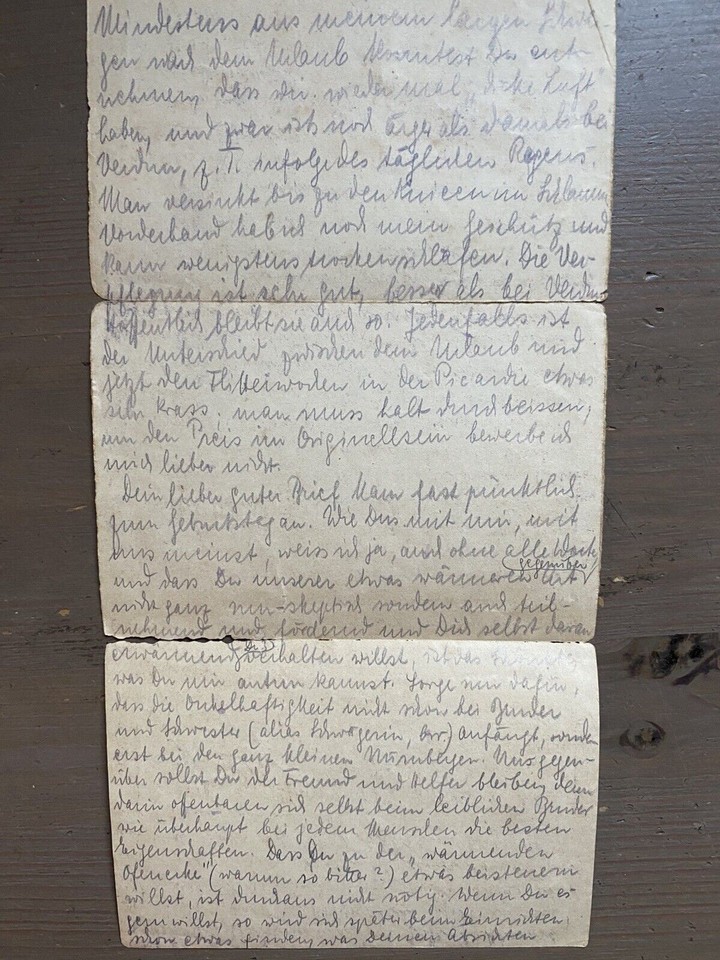 Mindestens aus meinem langen Schwei-
gen nach dem Urlaub konntest Du ent-
nehmen, dass wir wieder mal „dicke Luft
haben, und zwar ists noch ärger als damals bei
Verdun, z. T. infolge des täglichen Regens.
Man versinkt bis zu den Knieen im Schlamm
Vorderhand hab ich noch mein Geschütz und
kann wenigstens trocken schlafen. Die Ver-
pflegung ist sehr gut, besser als bei Verdun
hoffentlich bleibt sie auch so. Jedenfalls ist
der Unterschied zwischen dem Urlaub und
jetzt den Flitterwochen in der Picardie etwas
sehr krass; man muss halt durchbeissen;
um den Preis im Originellsein bewerbe ich
mich lieber nicht.
Dein lieber guter Brief kam fast pünktlich
zum Geburtstag an. Wie Dus mit mir, mit
uns meinst, weiss ich ja, auch ohne alle Worte
und dass Du unserer etwas wärmeren Art gegenüber
nicht ganz nur-skeptisch sondern auch teil-
nehmend und fördernd und Dich selbst daran
erwärmend verhalten willst, ist das
was Du mir antun kannst. Sorge nun dafür,
dass die Onkelhaftigkeit nicht schon bei Bruder
und Schwester (alias Schwägerin, br) anfängt, sondern
erst bei den ganz kleinen Nürnbergern. Uns gegen-
über sollst Du der Freund und Helfer bleiben, denn
darin offenbaren sich selbst beim leiblichen Bruder
wie überhaupt bei jedem Menschen die besten
Eigenschaften. Dass Du zu der „wärmenden
Ofenecke" (warum so bitter?) etwas beisteuern
willst, ist durchaus nicht nötig. Wenn Du es
gern willst, so wird sich später beim Einrichten
schon etwas finden, was Deinen Absichten